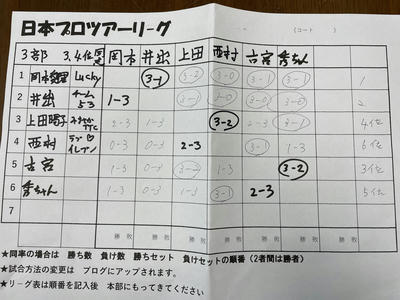 日本プロツアーリーグ
(コート )
3部 3.4位 岡本 井出 上田 西村 古宮 秀ちゃん
1 岡本 Lucky 3-1 3-2 3-0 3-1 3-1 1
2 井出 チーム53 1-3 3-1 3-0 3-0 3-0 2
3 上田 2-3 1-3 3-2 2-3 3-1 4位
4 西村 ラブ イレブン 0-3 0-3 2-3 3-1 1-3 6位
5 古宮 1-3 0-3 3-2 1-3 3-2 3位
6 秀ちゃん 1-3 0-3 1-3 3-1 2-3 5位
7
勝 敗 勝 敗 勝 敗 勝 敗 勝 敗 勝 敗
★同率の場合は 勝ち数 負け数 勝ちセット 負けセットの順番 (2者間は勝者)
★試合方法の変更は ブログにアップされます。
★リーグ表は順番を記入後 本部にもってきてください